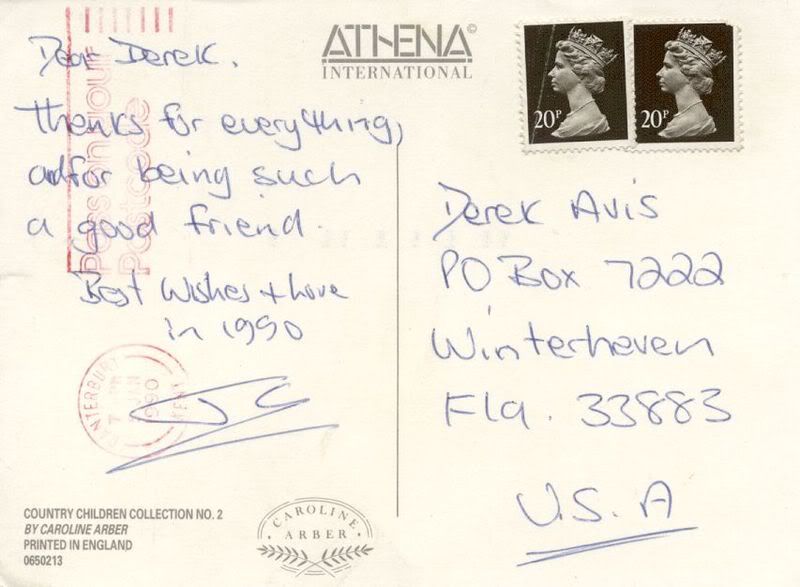 Dear Derek.
Thanks for everything,
and for being such
a good friend.
Best Wishes + Love
in 1990
ATHENA©
INTERNATIONAL
20P
20P
Derek Avis
PO Box 7222
Winterhaven
Fla. 33883
U.S.A
Pass on your
Postcode
CANTERBURY
7 PM
JAN
1990
KENT
COUNTRY CHILDREN COLLECTION NO. 2
BY CAROLINE ARBER
PRINTED IN ENGLAND
0650213
CAROLINE
ARBER